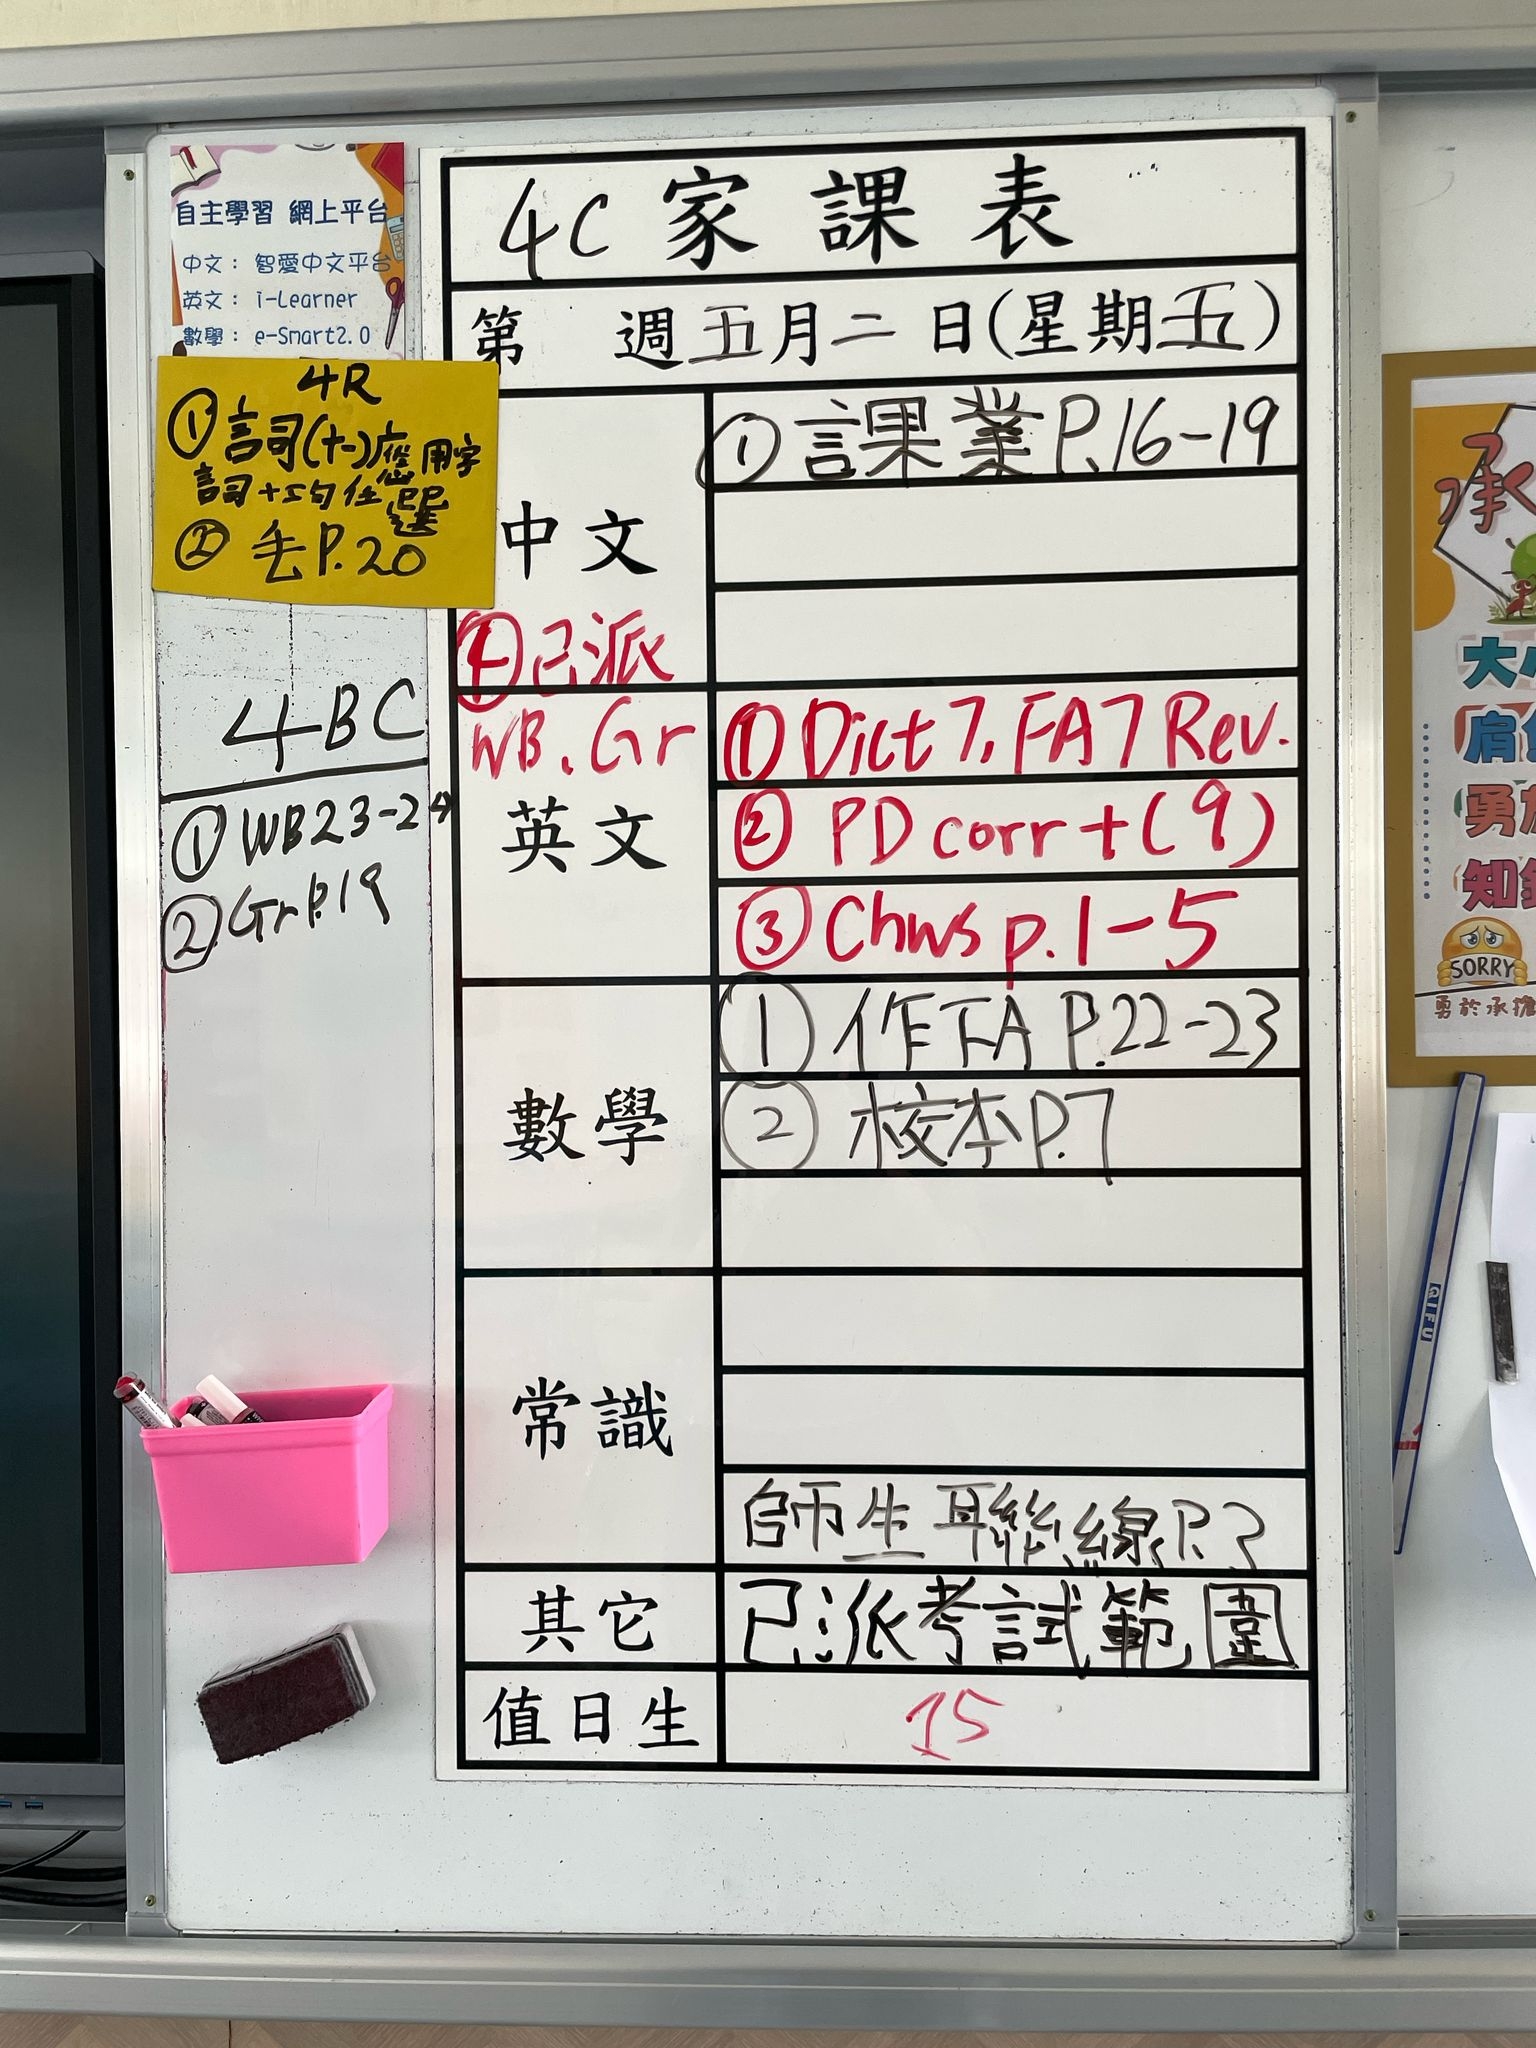 自主學習 網上平台
中文： 智愛中文平台
英文： i-Learner
數學： e-Smart2.0
4R
① 言司(十一)應用字
言司+工句任選
② 丢P.20
4BC
① WB23-24
② Gr P.19
4C 家課表
第 週五月二日(星期五)
中文
① 課業P.16-19
已派
WB.Gr
英文
① Dict 7, FA7 Rev.
② PD corr + (9)
③ Chws p.1-5
數學
① 作FA P.22-23
② 校本P.7
常識
師生聯線P.3
其它
已派考試範圍
值日生
15
承
大
肩
勇
知
SORRY
勇於承擔
QIFU